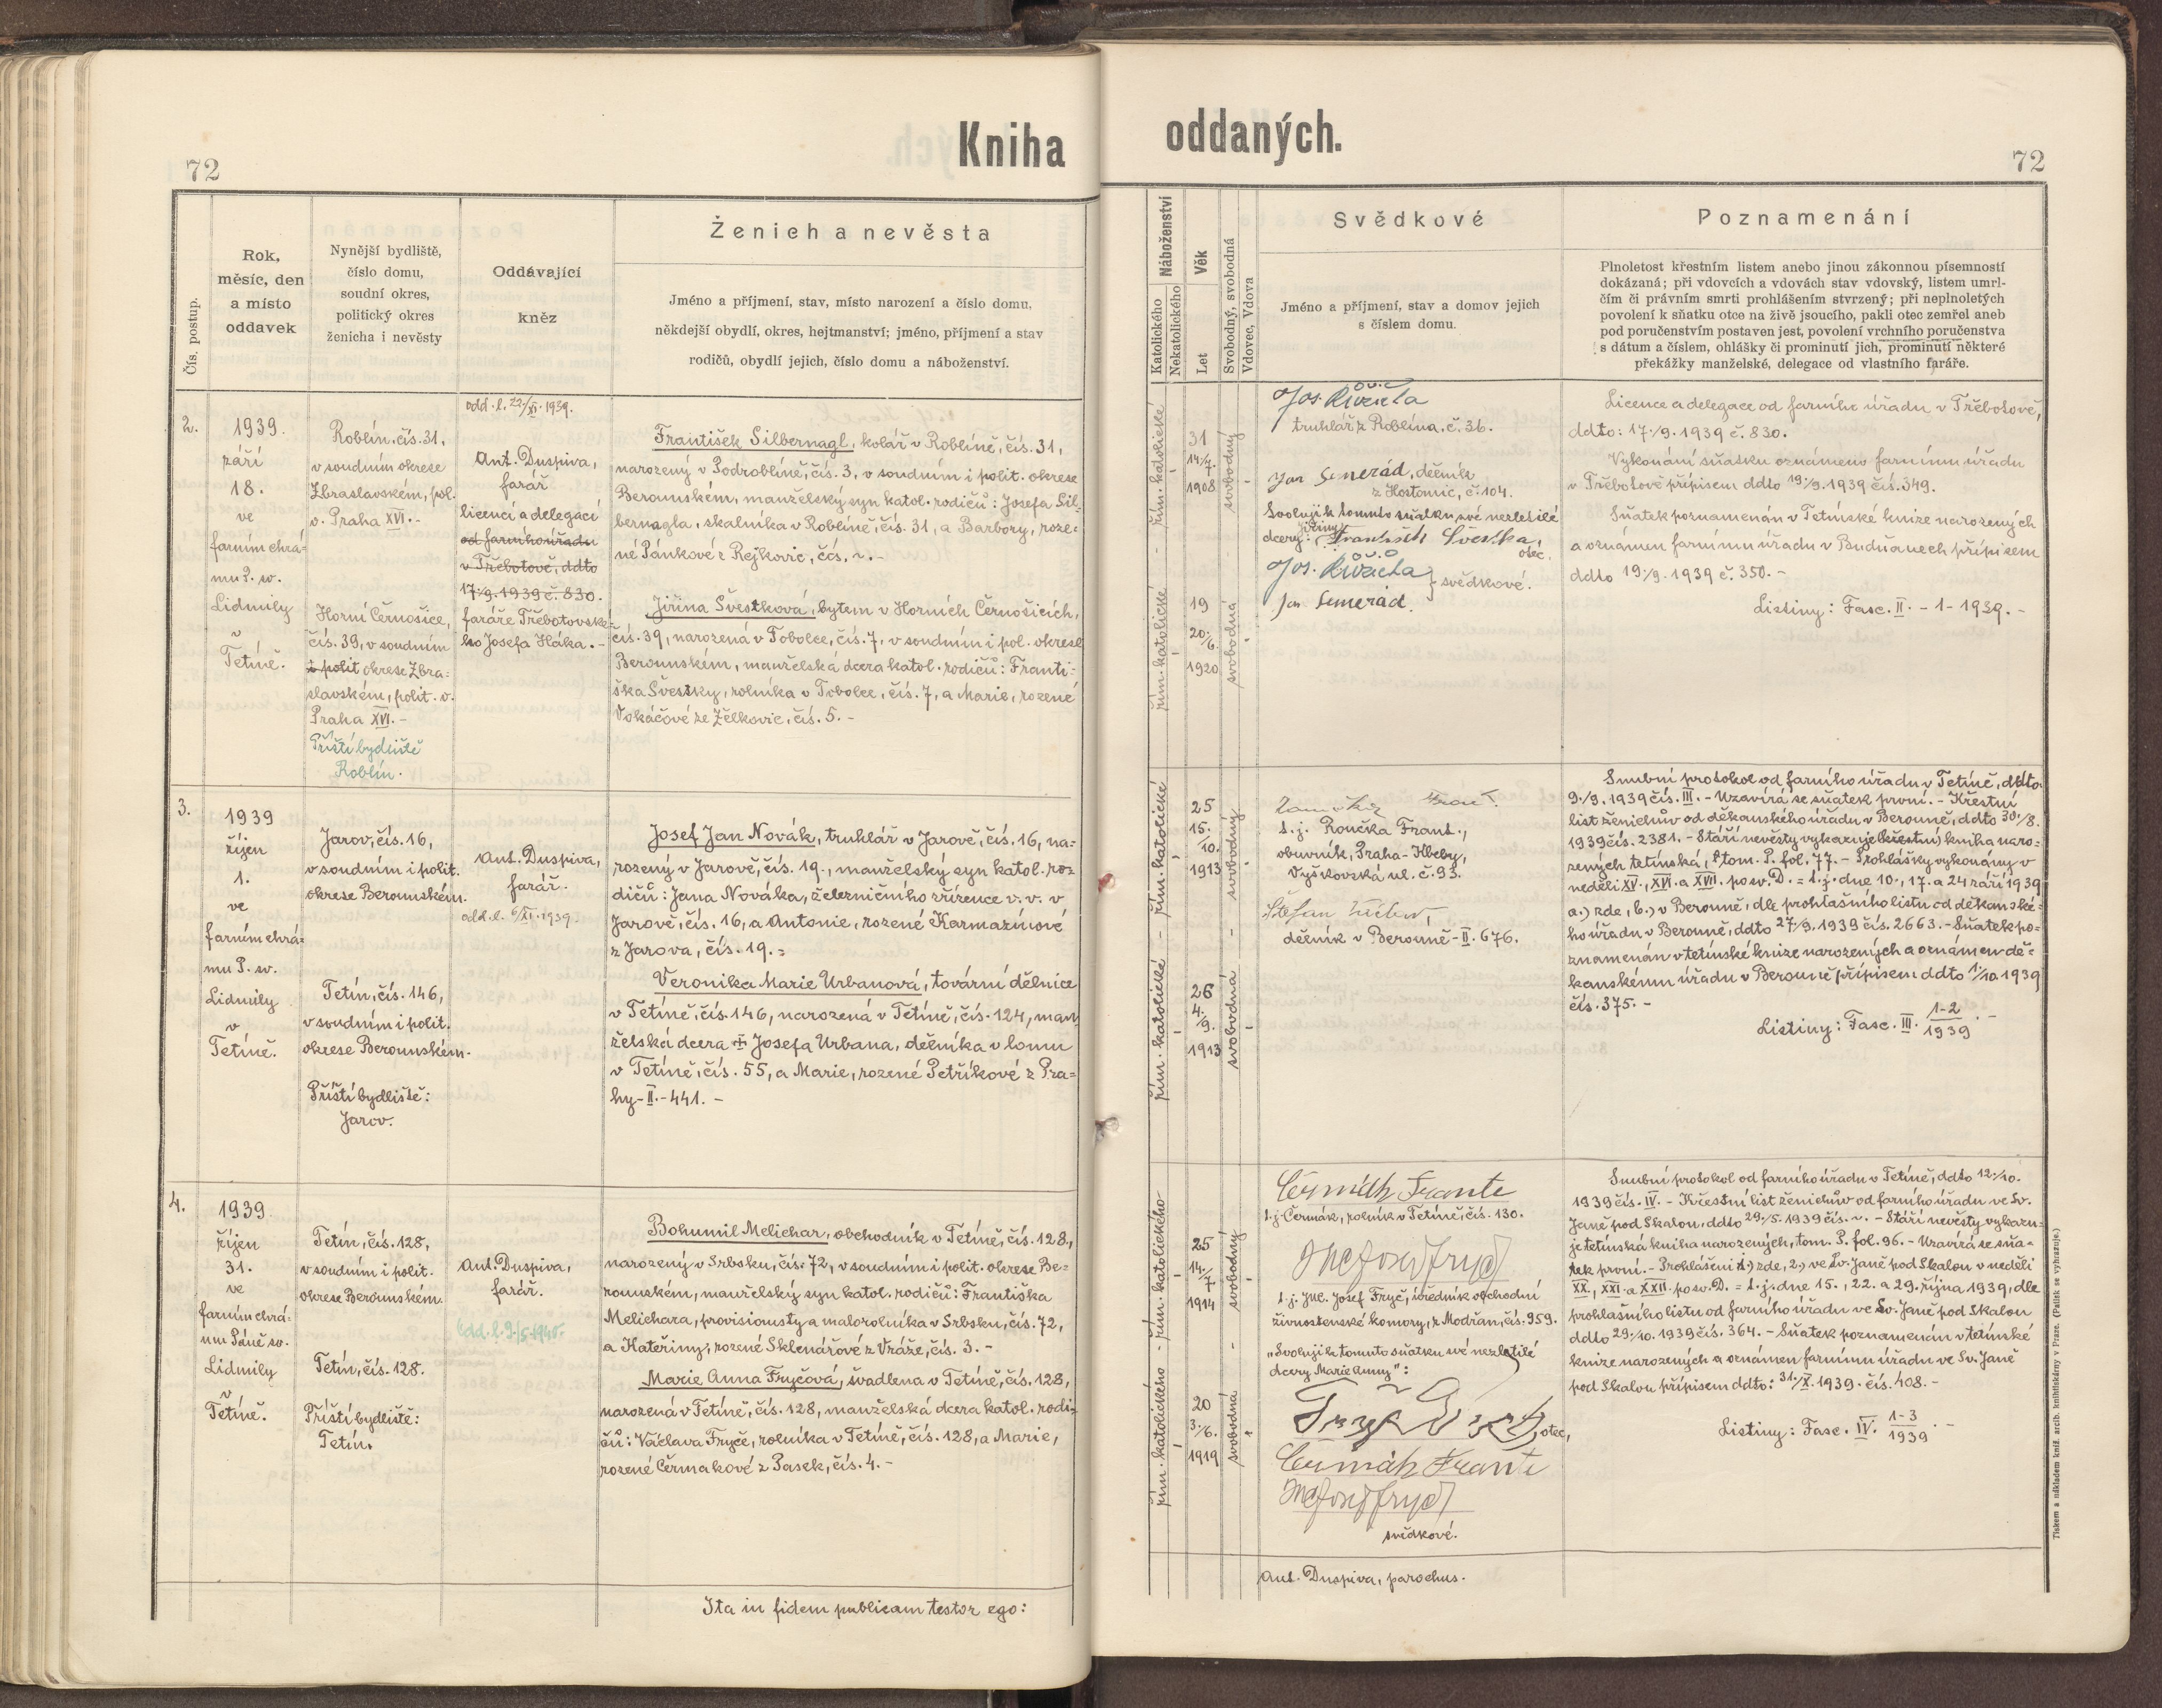 72
Kniha
Čís. postup.
Rok,
měsíc, den
a místo
oddavek
Nynější bydliště,
číslo domu,
soudní okres,
politický okres
ženicha i nevěsty
Oddávající
kněz
Ženich a nevěsta
Jméno a příjmení, stav, místo narození a číslo domu,
někdejší obydlí, okres, hejtmanství; jméno, příjmení a stav
rodičů, obydlí jejich, číslo domu a náboženství.
2.
1939.
září
18.
ve
farním chrá-
mu P. sv.
Lidmily
v
Tetíně.
Roblín, čís. 31,
v soudním okrese
Zbraslavském, pol.
o. Praha XVI. -
Horní Černošice,
čís. 39, v soudním
i polit okrese Zbra-
slavském, polit. o.
Praha XVI. -
Příští bydliště
Roblín.
odd. l. 22./XI. 1939.
Ant. Duspiva,
farář
licencí a delegací
od farního úřadu
v Třebotově, ddto
17./9. 1939 č. 830.
faráře Třebotovské-
ho Josefa Háka. -
František Silbernagl, kolář v Roblíně, čís. 31,
narozený v Podroblíně, čís. 3, v soudním i polit. okrese
Berounském, manželský syn katol. rodičů: Josefa Sil-
bernagla, skalníka v Roblíně, čís. 31, a Barbory, roze-
né Pánkové z Rejkovic, čís. ~. -
Jiřina Švestková, bytem v Horních Černošicích,
čís. 39, narozená v Tobolce, čís. 7, v soudním i pol. okrese
Berounském, manželská dcera katol. rodičů: Franti-
ška Švestky, rolníka v Tobolce, čís. 7, a Marie, rozené
Vokáčové ze Želkovic, čís. 5. -
3.
1939
říjen
1.
ve
farním chrá-
mu P. sv.
Lidmily
v
Tetíně.
Jarov, čís. 16,
v soudním i polit.
okrese Berounském.
Tetín, čís. 146,
v soudním i polit.
okrese Berounském.
Příští bydliště:
Jarov.
Ant. Duspiva,
farář.
odd. l. 6/XI. 1939.
Josef Jan Novák, truhlář v Jarově, čís. 16, na-
rozený v Jarově, čís. 19., manželský syn katol. ro-
dičů: Jana Nováka, železničního zřízence v. v. v
Jarově, čís. 16, a Antonie, rozené Karmazínové
z Jarova, čís. 19. -
Veronika Marie Urbanová, tovární dělnice
v Tetíně, čís. 146, narozená v Tetíně, čís. 124, man-
želská dcera + Josefa Urbana, dělníka v lomu
v Tetíně, čís. 55, a Marie, rozené Petříkové z Pra-
hy-II.-441. -
4.
1939
říjen
31.
ve
farním chrá-
mu Páně sv.
Lidmily
v
Tetíně.
Tetín, čís. 128,
v soudním i polit.
okrese Berounském.
Tetín, čís. 128.
Příští bydliště:
Tetín.
Ant. Duspiva,
farář.
Odd. l. 9./5. 1945.
Bohumil Melichar, obchodník v Tetíně, čís. 128,
narozený v Srbsku, čís. 72, v soudním i polit. okrese Be-
rounském, manželský syn katol. rodičů: Františka
Melichara, provisionisty a malorolníka v Srbsku, čís. 72,
a Kateřiny, rozené Sklenářové z Vráže, čís. 3. -
Marie Anna Fryčová, švadlena v Tetíně, čís. 128,
narozená v Tetíně, čís. 128, manželská dcera katol. rodi-
čů: Václava Fryče, rolníka v Tetíně, čís. 128, a Marie,
rozené Čermákové z Pasek, čís. 4. -
Ita in fidem publicam testor ego:
oddaných.
72
Náboženství
Katolického
Nekatolického
Věk
Let
Svobodný, svobodná
Vdovec, Vdova
Svědkové
Jméno a příjmení, stav a domov jejich
s číslem domu.
Poznamenání
Plnoletost křestním listem anebo jinou zákonnou písemností
dokázaná; při vdovcích a vdovách stav vdovský, listem umrl-
čím či právním smrti prohlášením stvrzený; při neplnoletých
povolení k sňatku otce na živě jsoucího, pakli otec zemřel aneb
pod poručenstvím postaven jest, povolení vrchního poručenstva
s dátum a číslem, ohlášky či prominutí jich, prominutí některé
překážky manželské, delegace od vlastního faráře.
řím. katolické
31
14./7.
1908
svobodný
řím. katolické
19
20./6.
1920
svobodná
Jos.
truhlář z Roblína. č. 36.
Jan Semerád, dělník
z Hostomic, č. 104.
Svoluji k tomuto sňatku své nezletilé
dcery Jiřiny: František Švestka,
otec.
Jos.
Jan Semerád.
svědkové.
Licence a delegace od farního úřadu v Třebotově,
ddto: 17./9. 1939 č. 830.
Vykonání sňatku oznámeno farnímu úřadu
v Třebotově přípisem ddto 19./9. 1939 čís. 349.
Sňatek poznamenán v Tetínské knize narozených
a oznámen farnímu úřadu v Budňanech přípisem
ddto 19./9. 1939 č. 350. -
Listiny: Fasc. II. - 1 - 1939. -
řím. katolické
25
15./10.
1913
svobodný
řím. katolické
26
4./9.
1913
svobodná
t. j. Roučka Frant.,
obuvník, Praha-Hloubětín,
Vyškovská ul. č. 93.
Štefan
dělník v Berouně-II. 676.
Snubní protokol od farního úřadu v Tetíně, ddto
9./9. 1939 čís. III. - Uzavírá se sňatek první. - Křestní
list ženichův od děkanského úřadu v Berouně, ddto 30./8.
1939 čís. 2381. - Stáří nevěsty vykazuje (křestní) kniha naro-
zených tetínská, tom. P. fol. 77. - Prohlášky vykonány v
neděli XV., XVI. a XVII. po sv. D. = t. j. dne 10., 17. a 24 září 1939
a.) zde, b.) v Berouně, dle prohlašního listu od děkanské-
ho úřadu v Berouně, ddto 27./9. 1939 čís. 2663. - Sňatek po-
znamenán v tetínské knize narozených a oznámen dě-
kanskému úřadu v Berouně přípisem ddto 1./10. 1939
čís. 375. -
Listiny: Fasc. III. 1-2/1939. -
řím. katolického
25
14./7.
1914
svobodný
řím. katolického
20
3./6.
1919
svobodná
Čermák Frant.
t. j. Čermák, rolník v Tetíně, čís. 130.
t. j. JUC. Josef Fryč, úředník obchodní
živnostenské komory, z Modřan, čís. 959.
„Svoluji k tomuto sňatku své nezletilé
dcery Marie Anny":
otec,
Čermák Frant.
svědkové.
Snubní protokol od farního úřadu v Tetíně, ddto 12./10.
1939 čís. IV. - Křestní list ženichův od farního úřadu ve Sv.
Janě pod Skalou, ddto 29./5. 1939 čís. ~. - Stáří nevěsty vykazu-
je tetínská kniha narozených, tom. P. fol. 96. - Uzavírá se sňa-
tek první. - Prohlášeni 1.) zde, 2.) ve Sv. Janě pod Skalou v neděli
XX., XXI. a XXII. po sv. D. = t. j. dne 15., 22. a 29. října 1939, dle
prohlašního listu od farního úřadu ve Sv. Janě pod Skalou
ddto 29./10. 1939 čís. 364. - Sňatek poznamenán v tetínské
knize narozených a oznámen farnímu úřadu ve Sv. Janě
pod Skalou přípisem ddto: 31./X. 1939. čís. 408. -
Listiny: Fasc. IV. 1-3/1939. -
Ant. Duspiva, parochus.
Tiskem a nákladem kníž. arcib. knihtiskárny v Praze. (Patisk se vyhrazuje.)